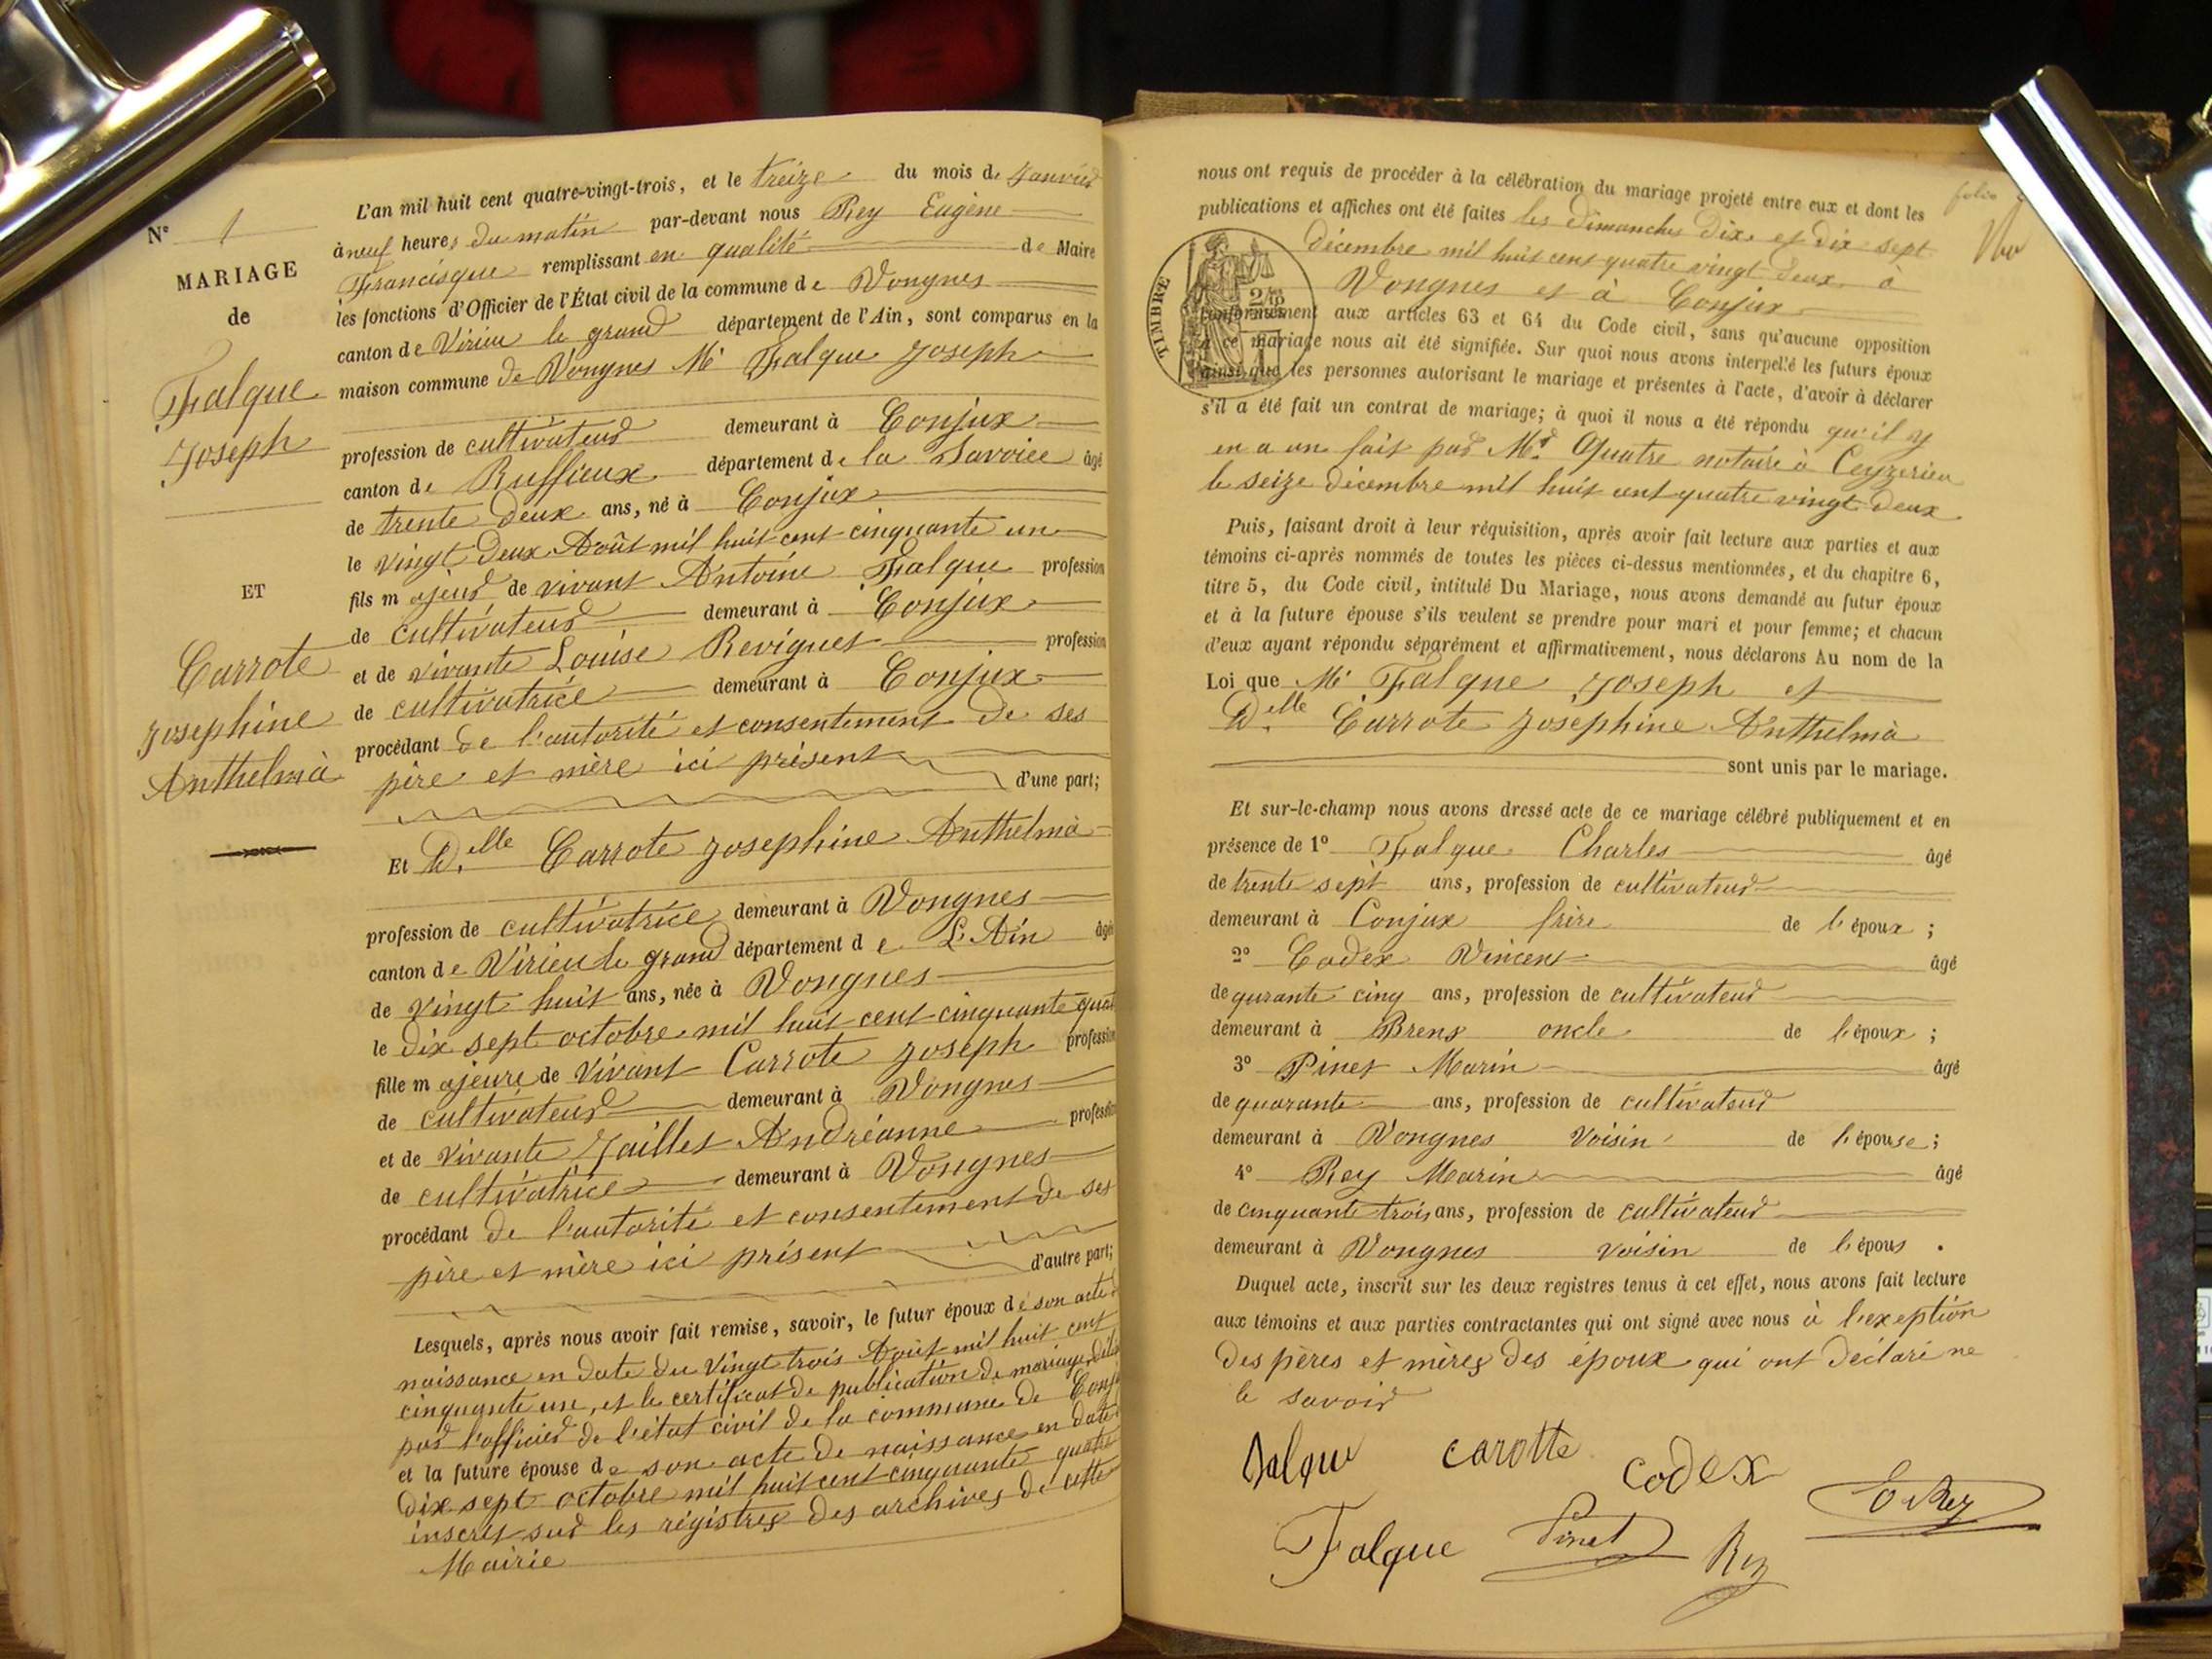 N° 1
MARIAGE
de
Falque
Joseph
ET
Carrote
Josephine
Anthelmà
L'an mil huit cent quatre-vingt-trois, et le treize du mois de Janvier
à neuf heures du matin par-devant nous Rey Eugène
Francisque remplissant en qualité de Maire
les fonctions d'Officier de l'État civil de la commune de Vongnes
canton de Virieu le grand département de l'Ain, sont comparus en la
maison commune de Vongnes Mr Falque Joseph
profession de cultivateur demeurant à Conjux
canton de Ruffieux département de la Savoiee âgé
de trente deux ans, né à Conjux
le vingt deux Août mil huit cent cinquante un
fils majeur de vivant Antoine Falque profession
de cultivateur demeurant à Conjux
et de vivante Louise Reviguet profession
de cultivatrice demeurant à Conjux
procédant de l'autorité et consentement de ses
père et mère ici présent
d'une part;
Et Delle Carrote Josephine Anthelmà
profession de cultivatrice demeurant à Vongnes
canton de Virieu le grand département de L'Ain âgé
de vingt huit ans, née à Vongnes
le dix sept octobre mil huit cent cinquante quat
fille majeure de vivant Carrote Joseph profession
de cultivateur demeurant à Vongnes
et de vivante Jaillet Andréanne profession
de cultivatrice demeurant à Vongnes
procédant de l'autorité et consentement de ses
père et mère ici présent
d'autre part;
Lesquels, après nous avoir fait remise, savoir, le futur époux de son acte
naissance en date du vingt trois Août mil huit cent
cinquante un, et le certificat de publication de mariage
par l'officier de l'état civil de la commune de Conj
et la future épouse de son acte de naissance en date
dix sept octobre mil huit cent cinquante quatre
inscrit sur les régistres des archives de cette
Mairie
folio
nous ont requis de procéder à la célébration du mariage projeté entre eux et dont les
publications et affiches ont été faites les Dimanches Dix et dix sept
Décembre mil huit cent quatre vingt deux à
Vongnes et à Conjux
TIMBRE
conformément aux articles 63 et 64 du Code civil, sans qu'aucune opposition
à ce mariage nous ait été signifiée. Sur quoi nous avons interpellé les futurs époux
ainsi que les personnes autorisant le mariage et présentes à l'acte, d'avoir à déclarer
s'il a été fait un contrat de mariage; à quoi il nous a été répondu qu'il y
en a un fait par Mr Quatre notaire à Ceyzerieu
le seize décembre mil huit cent quatre vingt deux
Puis, faisant droit à leur réquisition, après avoir fait lecture aux parties et aux
témoins ci-après nommés de toutes les pièces ci-dessus mentionnées, et du chapitre 6,
titre 5, du Code civil, intitulé Du Mariage, nous avons demandé au futur époux
et à la future épouse s'ils veulent se prendre pour mari et pour femme; et chacun
d'eux ayant répondu séparément et affirmativement, nous déclarons Au nom de la
Loi que Mr Falque Joseph et
Delle Carrote Josephine Anthelmà
sont unis par le mariage.
Et sur-le-champ nous avons dressé acte de ce mariage célébré publiquement et en
présence de 1° Falque Charles âgé
de trente sept ans, profession de cultivateur
demeurant à Conjux frère de l'époux ;
2° Codex Vincent âgé
de qurante cinq ans, profession de cultivateur
demeurant à Brens oncle de l'époux ;
3° Pinet Marin âgé
de quarante ans, profession de cultivateur
demeurant à Vongnes voisin de l'épouse ;
4° Rey Marin âgé
de cinquante trois ans, profession de cultivateur
demeurant à Vongnes voisin de l'épous .
Duquel acte, inscrit sur les deux registres tenus à cet effet, nous avons fait lecture
aux témoins et aux parties contractantes qui ont signé avec nous à l'exeption
des pères et mères des époux qui ont déclaré ne
le savoir
Falque carotte codex
E Rey
Falque Pinet Rey